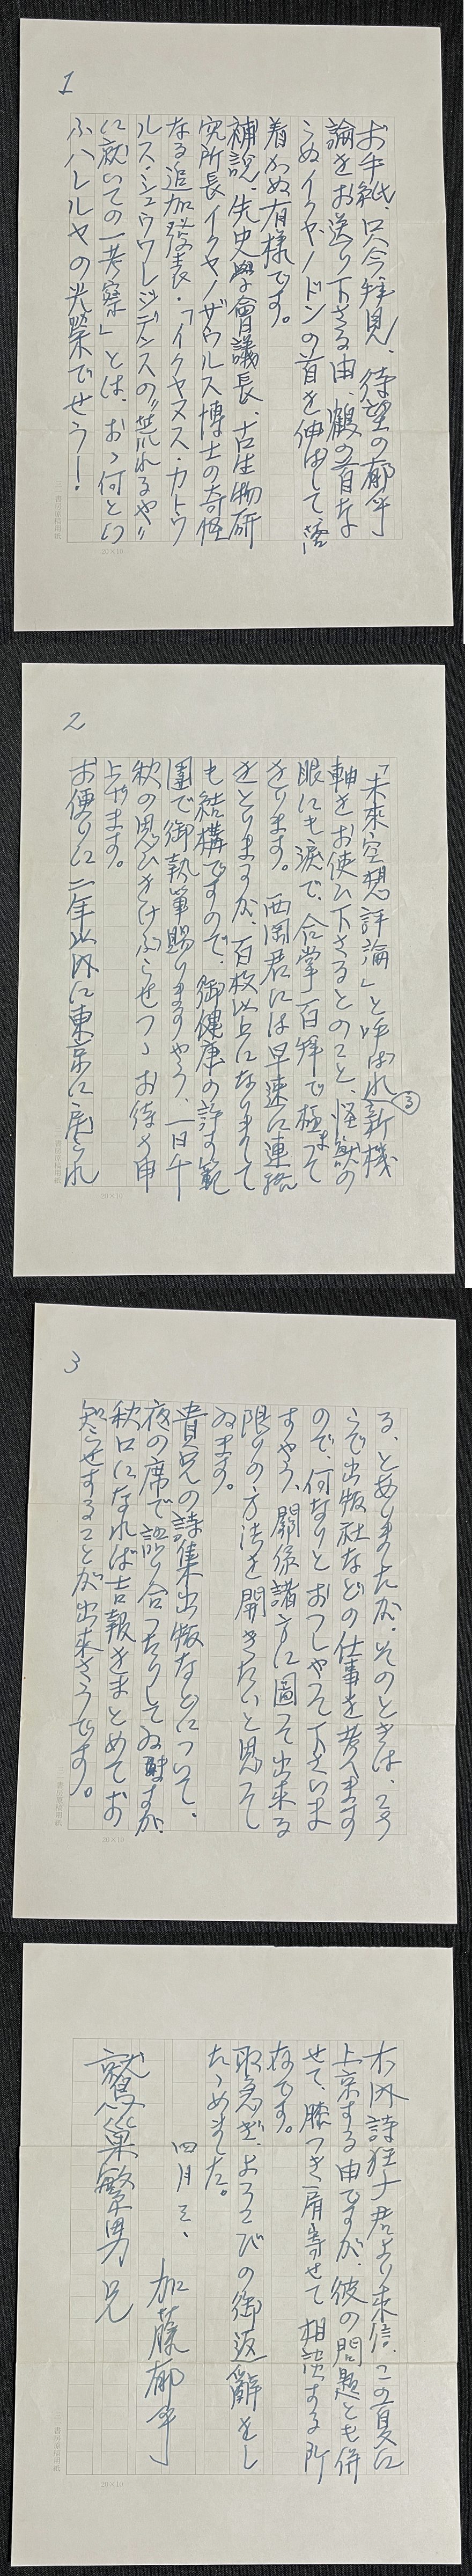 1
お手紙、只今拝見、待望の郁乎
論をお送り下さる由、鶴の首な
らぬイクヤノドンの首を伸ばして、落
着かぬ有様です。
補説、先史學會議長、古生物研
究所長イクヤノザウルス博士の奇怪
なる追加發表・「イクヤヌス・カトウ
ルス・ジュウワレジデンスの〃荒れるや〃
に就いての一考察」とは、おゝ何とい
ふハレルヤの光榮でせう!
書房原稿用紙
20×10
2
「未來空想評論」と呼ばれ新機
③
軸をお使ひ下さるとのこと、怪獣の
眼にも涙で、合掌百拜で極まつて
をります。西岡君には早速に連絡
をとりますが、百枚以上になりまして
も結構ですので、御健康の許す範
圍で御執筆賜りますやう、一日千
秋の思ひをけぶらせつゝお待ち申
上げます。
お便りに二年以外に東京に戻られ
書房原稿用紙
20×10
3
る、とありましたが、そのときは、こち
らで出版社などの仕事を考へます
ので、何なりとおつしやつて下さいま
すやう、關係諸方に圖つて出来る
限りの方法を開きたいと思つて
ゐます。
貴兄の詩集出版などについて、
夜の席で語り合つたりしてゐますが、
秋口になれば吉報をまとめてお
知らせすることが出来さうです。
書房原稿用紙
20×10
大外詩狂ナ君より来信、この夏に
上京する由ですが、彼の問題とも併
せて、膝つき肩寄せて相談する所
存です。
取急ぎ、よろこびの御返辭をし
たゝめました。
四月三、
加藤郁乎
鷲巣繁男兄
書房原稿用紙
20×10